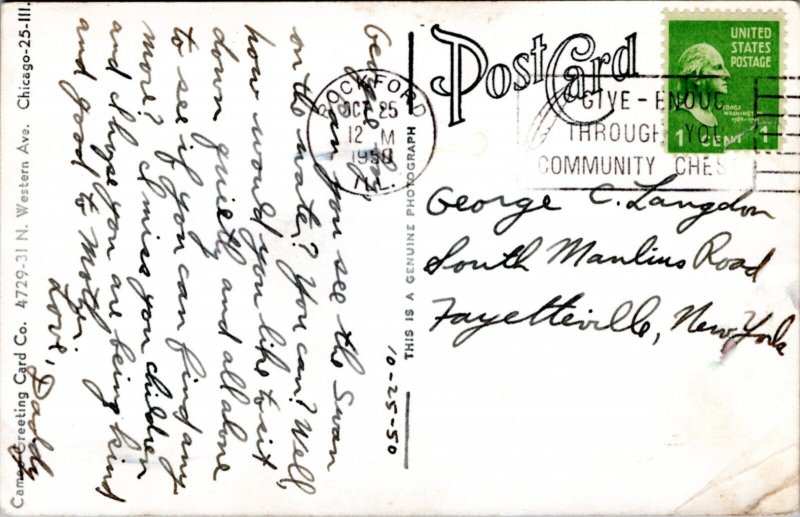 Cameo Greeting Card Co. 4729-31 N. Western Ave. Chicago-25-Ill.
George
Can you see the Swan
on the water? You can? Well,
how would you like to sit
down quietly and all alone
to see if you can find any
more? I miss you children
and I hope you are being kind
and good to Mother.
Love,
Daddy
10-25-50
THIS IS A GENUINE PHOTOGRAPH
Post Card
ROCKFORD
OCT 25
12 M
1950
ILL.
GIVE - ENOUG
THROUGH YOU
COMMUNITY CHES
UNITED
STATES
POSTAGE
GEORGE
WASHINGTON
1 CENT 1
George C. Langdon
South Manlius Road
Fayetteville, New York